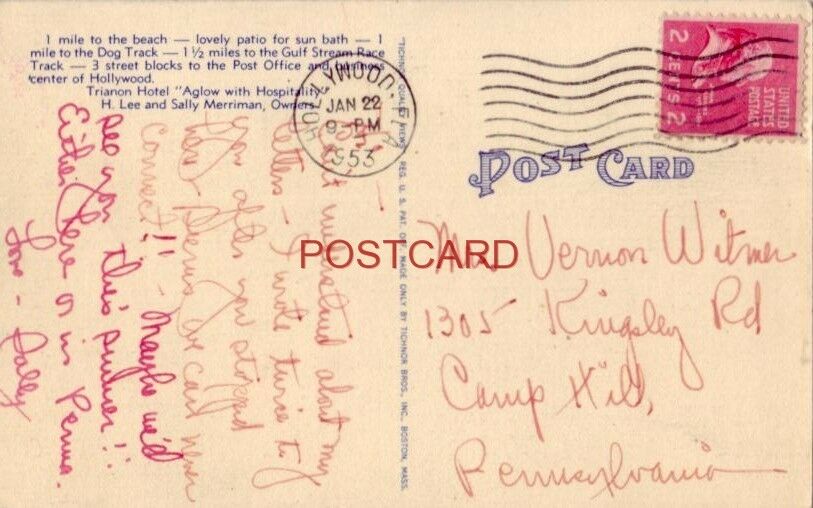 1 mile to the beach — lovely patio for sun bath — 1
mile to the Dog Track — 1 ½ miles to the Gulf Stream Race
Track — 3 street blocks to the Post Office and business
center of Hollywood.
Trianon Hotel "Aglow with Hospitality"
H. Lee and Sally Merriman, Owners
understand about my
letters - I wrote twice to
you after you stopped
here. Seems we can never
Connect!! - Maybe we'd
see you this summer!!
Either here or in Penna.
Love - Sally
"TICHNOR QUALITY VIEWS," REG. U. S. PAT. OFF. MADE ONLY BY TICHNOR BROS., INC., BOSTON, MASS.
HOLLYWOOD, FLA.
JAN 22
9 - PM
1953
UNITED
STATES
POSTAGE
2 CENTS 2
POST CARD
POSTCARD
Mrs Vernon Witmer
1305 Kingsley Rd
Camp Hill,
Pennsylvania